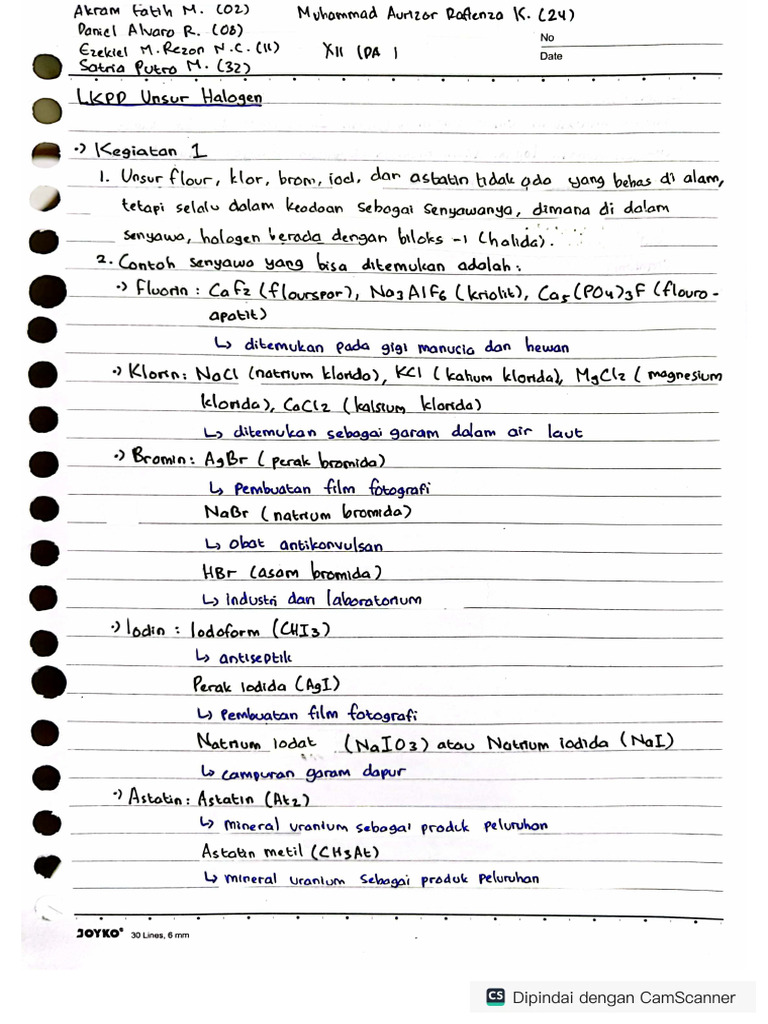 Akram Fatih M. (02)
Muhammad Aurizar Raflenza K. (24)
Daniel Alvaro R. (08)
Ezekiel M. Rezon N.C. (11)
XII IPA 1
Satria Putra M. (32)
No
Date
LKPD Unsur Halogen
·) Kegiatan 1
1. Unsur flour, klor, brom, iod, dan astatin tidak ada yang bebas di alam,
tetapi selalu dalam keadaan sebagai senyawanya, dimana di dalam
senyawa, halogen berada dengan biloks -1 (halida).
2. Contoh senyawa yang bisa ditemukan adalah:
·) Fluorin : CaF2 (flourspar), Na3AlF6 (kriolit), Ca5(PO4)3F (flouro-
apatit)
↳ ditemukan pada gigi manucia dan hewan
·) Klorin : NaCl (natrium klorida), KCl (kalium klorida), MgCl2 (magnesium
klorida), CaCl2 (kalsium klorida)
↳ ditemukan sebagai garam dalam air laut
·) Bromin : AgBr (perak bromida)
↳ Pembuatan film fotografi
NaBr (natrium bromida)
↳ obat antikonvulsan
HBr (asam bromida)
↳ industri dan laboratorium
·) Iodin : Iodoform (CHI3)
↳ antiseptik
Perak iodida (AgI)
↳ Pembuatan film fotografi
Natrium iodat (NaIO3) atau Natrium iodida (NaI)
↳ campuran garam dapur
·) Astatin : Astatin (At2)
↳ mineral uranium sebagai produk peluruhan
Astatin metil (CH3At)
↳ mineral uranium sebagai produk peluruhan
JOYKO® 30 Lines, 6 mm
CS Dipindai dengan CamScanner